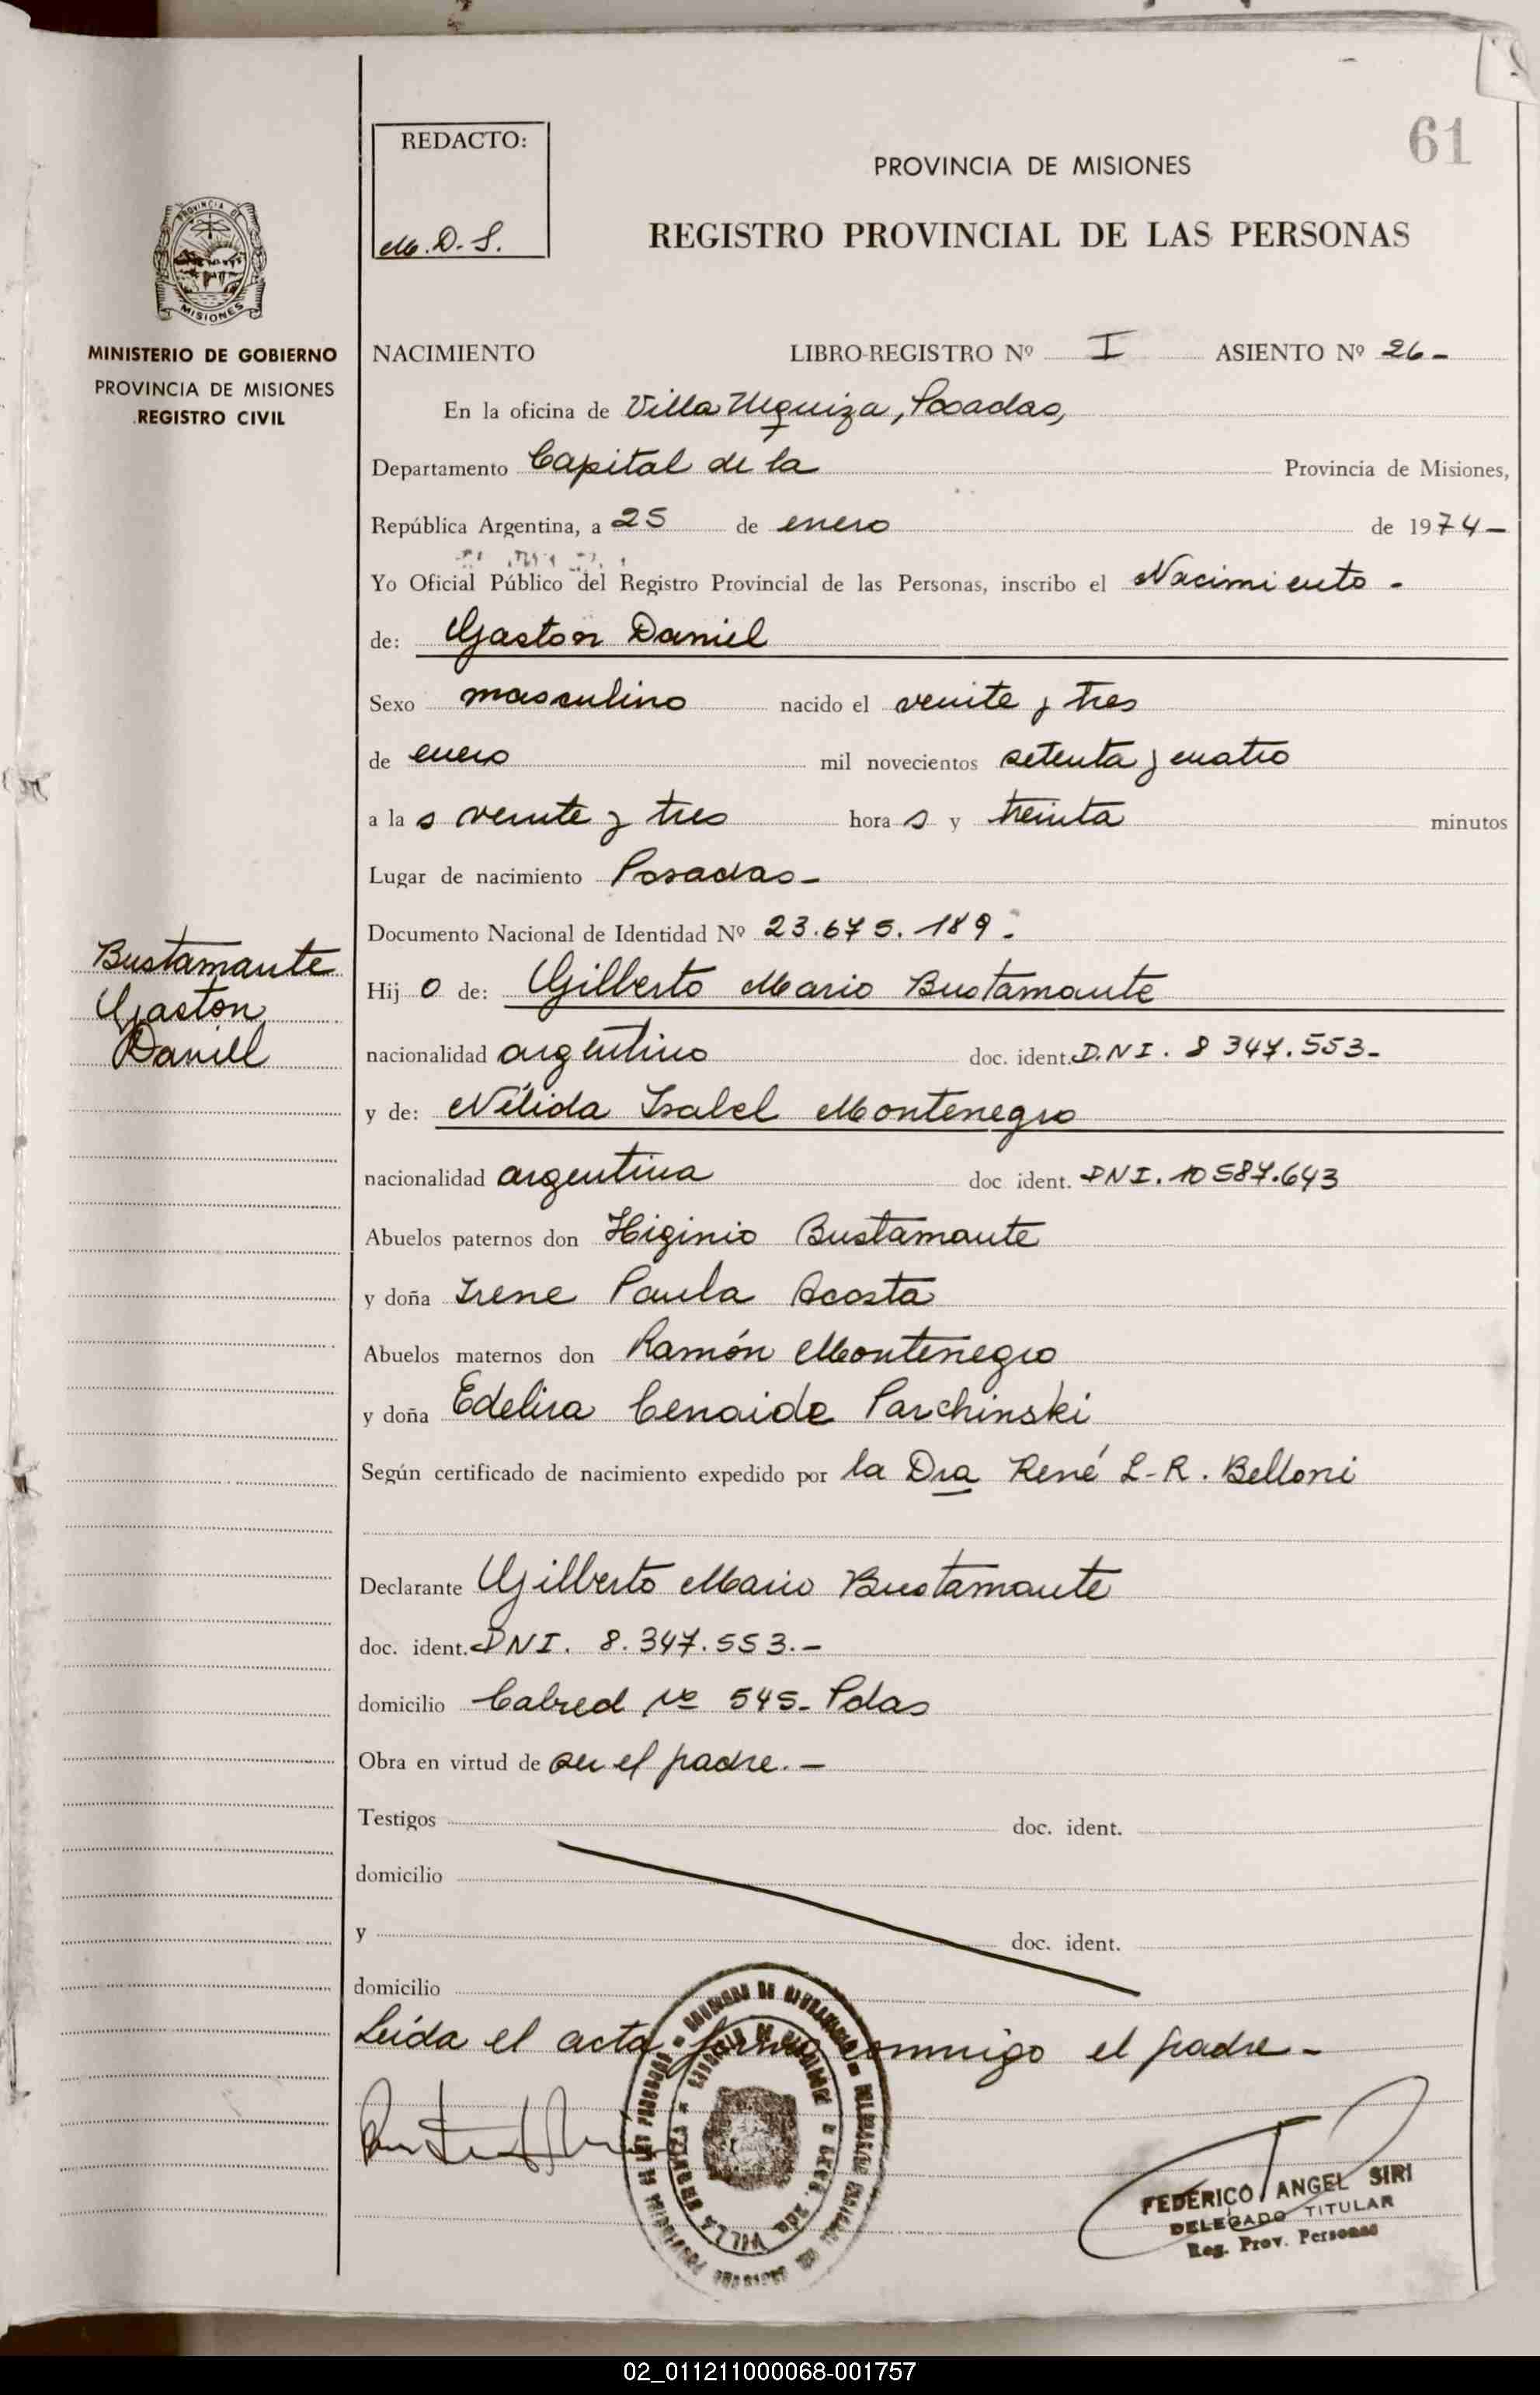 61
REDACTO:
M. D. S.
PROVINCIA DE MISIONES
REGISTRO PROVINCIAL DE LAS PERSONAS
PROVINCIA DE
MISIONES
MINISTERIO DE GOBIERNO
PROVINCIA DE MISIONES
REGISTRO CIVIL
NACIMIENTO LIBRO-REGISTRO Nº I ASIENTO Nº 26-
En la oficina de Villa Urquiza, Posadas,
Departamento Capital de la Provincia de Misiones,
República Argentina, a 25 de enero de 1974-
Yo Oficial Público del Registro Provincial de las Personas, inscribo el Nacimiento-
de: Gaston Daniel
Sexo masculino nacido el veinte y tres
de enero mil novecientos setenta y cuatro
a las veinte y tres horas y treinta minutos
Lugar de nacimiento Posadas-
Documento Nacional de Identidad Nº 23.675.189.
Bustamante
Gaston
Daniel
Hijo de: Gilberto Mario Bustamante
nacionalidad argentino doc. ident. D.N.I. 8347.553-
y de: Nélida Isabel Montenegro
nacionalidad argentina doc ident. DNI. 10587.643
Abuelos paternos don Higinio Bustamante
y doña Irene Paula Acosta
Abuelos maternos don Ramón Montenegro
y doña Edelira Cenaide Parchinski
Según certificado de nacimiento expedido por la Dra René L-R. Belloni
Declarante Gilberto Mario Bustamante
doc. ident. DNI. 8.347.553.-
domicilio Cabred Nº 545- Pdas
Obra en virtud de ser el padre.-
Testigos doc. ident.
domicilio
y doc. ident.
domicilio
Leída el acta firma conmigo el padre-
VILLA URQUIZA
FEDERICO ANGEL SIRI
DELEGADO TITULAR
Reg. Prov. Personas
02_011211000068-001757